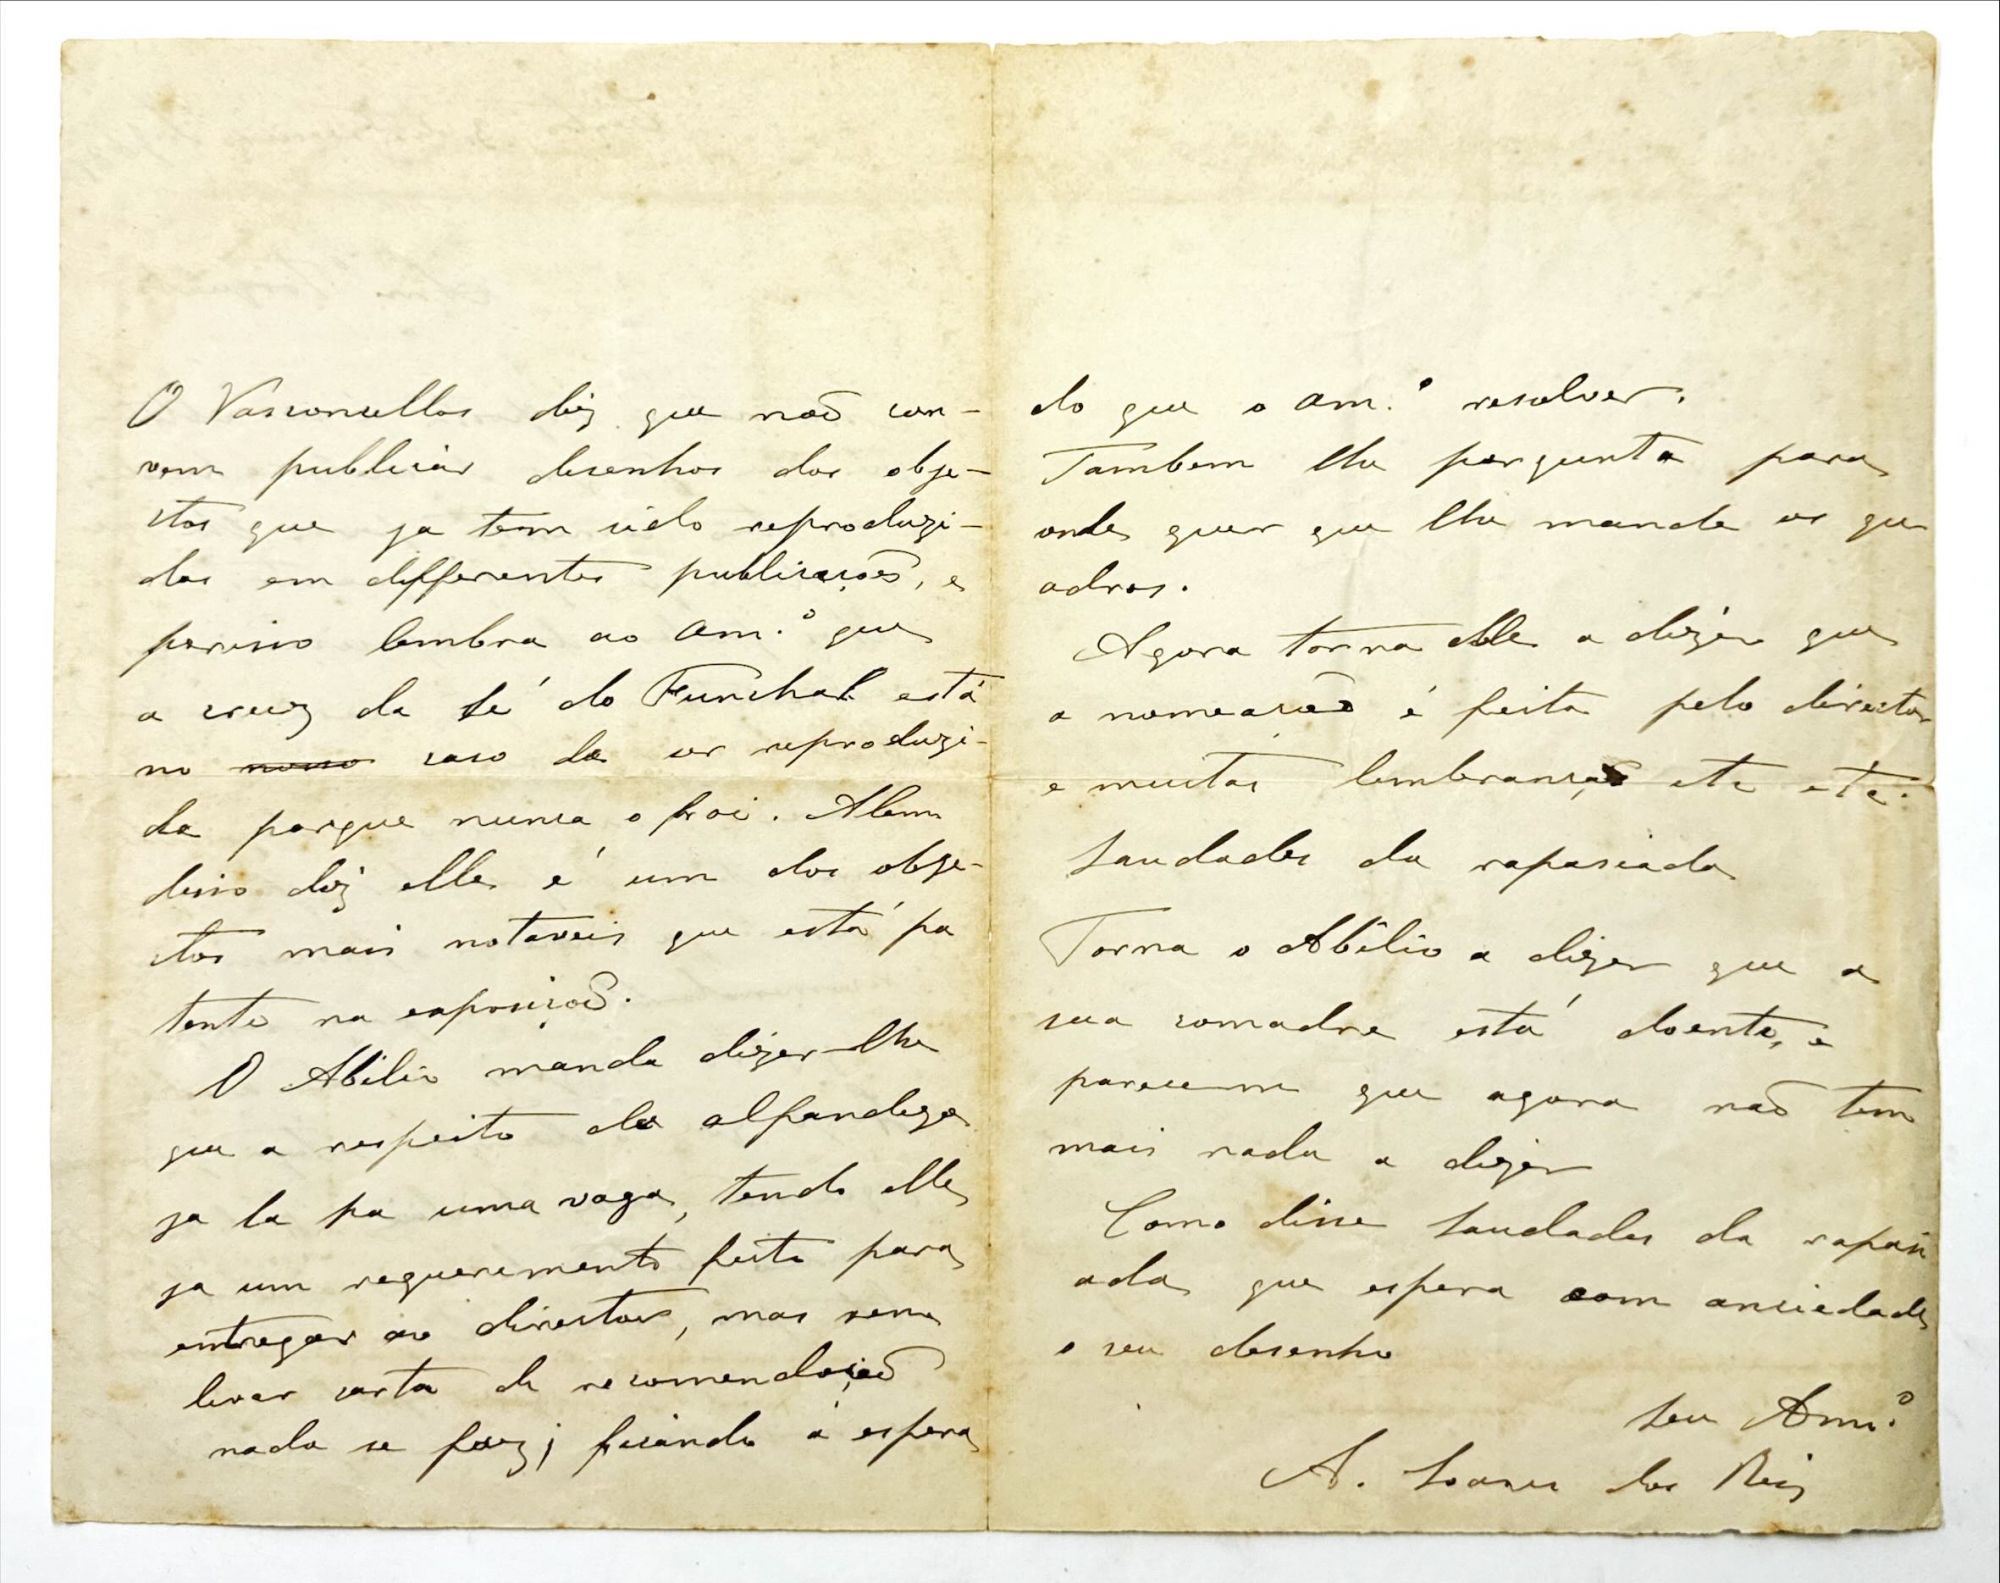 O Vasconcellos diz que não con-
vem publicar desenhos dos obje-
ctos que ja tem sido reproduzi-
dos em differentes publicações, e
por isso lembra ao Am.º que
a cruz da Sé do Funchal está
no nosso caso de ser reproduzi-
da porque nunca o foi. Alem
disso diz elle é um dos obje-
ctos mais notaveis que está pa
tente na exposição.
O Abilio manda dizer-lhe
que a respeito da alfandega
ja la ha uma vaga, tendo elle
ja um requerimento feito para
entregar ao director, mas sem
levar carta de recomendação
nada se faz; ficando á espera
do que o Am.º resolver.
Tambem lhe pergunta para
onde quer que lhe mande os qu
adros.
Agora torna elle a dizer que
a nomeação é feita pelo director
e muitas lembranças etc etc.
Saudades da rapasiada
Torna o Abilio a dizer que a
sua comadre está doente, e
parece-me que agora não tem
mais nada a dizer
Como disse saudades da rapasi
ada que espera com anciedade
o seu desenho
Seu Am.º
A. Soares dos Reis